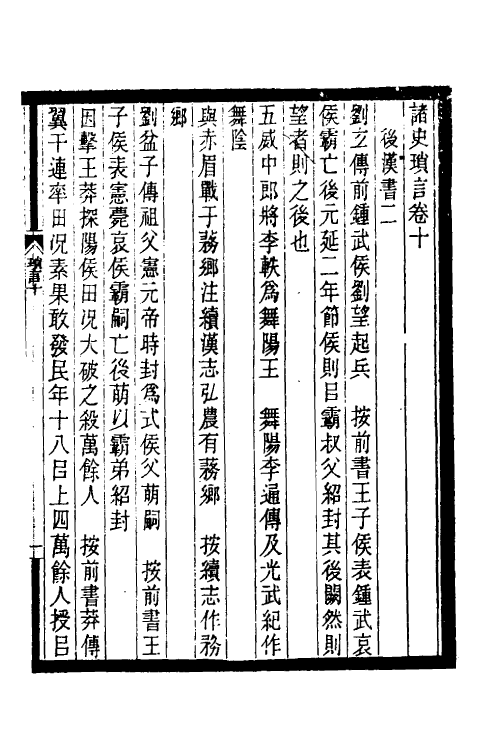 諸史瑣言卷十
後漢書二
劉玄傳前鍾武侯劉望起兵　按前書王子侯表鍾武哀
侯霸亡後元延二年節侯則㠯霸叔父紹封其後闕然則
望者則之後也
五威中郎將李軼爲舞陽王　舞陽李通傳及光武紀作
舞陰
與赤眉戰于蓩鄉注續漢志弘農有蓩鄉　按續志作務
鄉
劉盆子傳祖父憲元帝時封爲式侯父萌嗣　按前書王
子侯表憲薨哀侯霸嗣亡後萌以霸弟紹封
因擊王莽探陽侯田況大破之殺萬餘人　按前書莽傳
翼平連率田況素果敢發民年十八㠯上四萬餘人授㠯
瑣言十
一